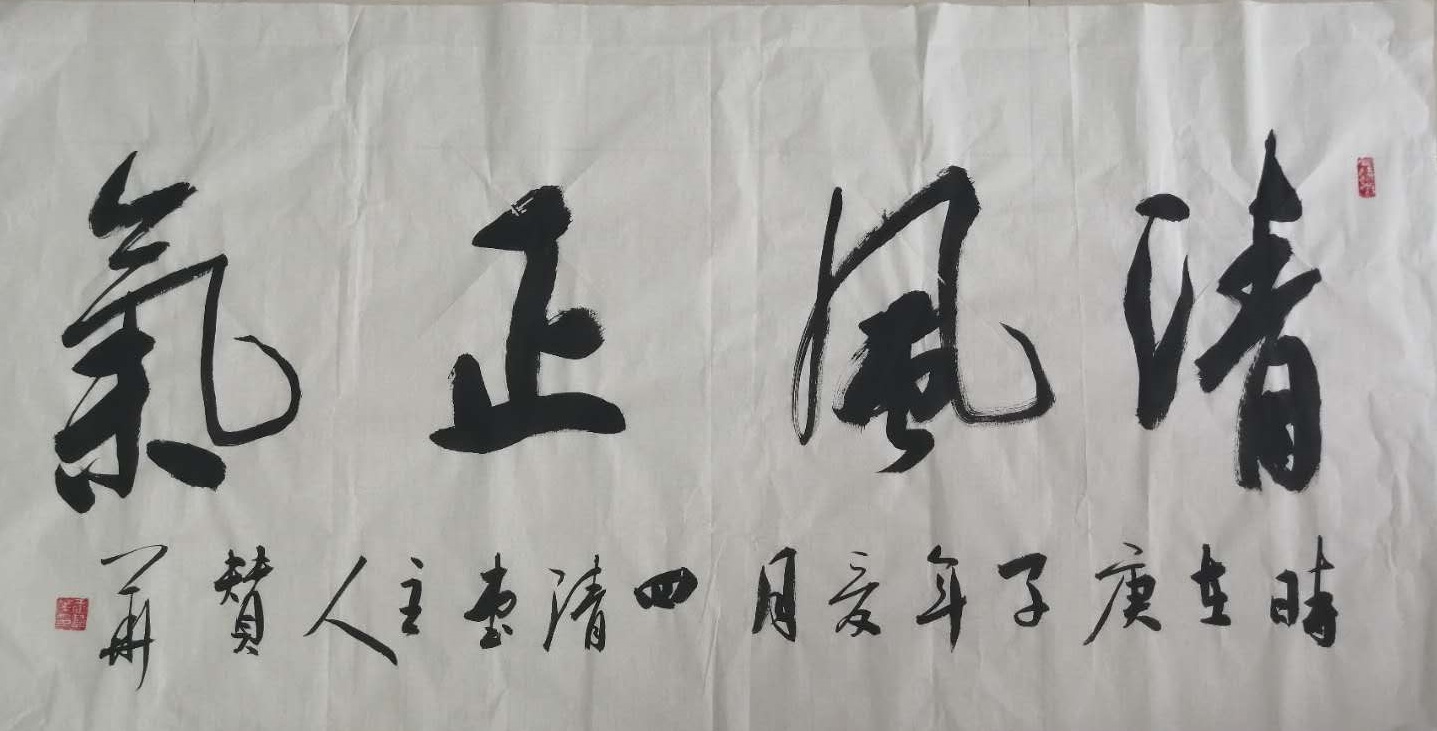 清風正氣
時在庚子年夏月四清堂主人贊華